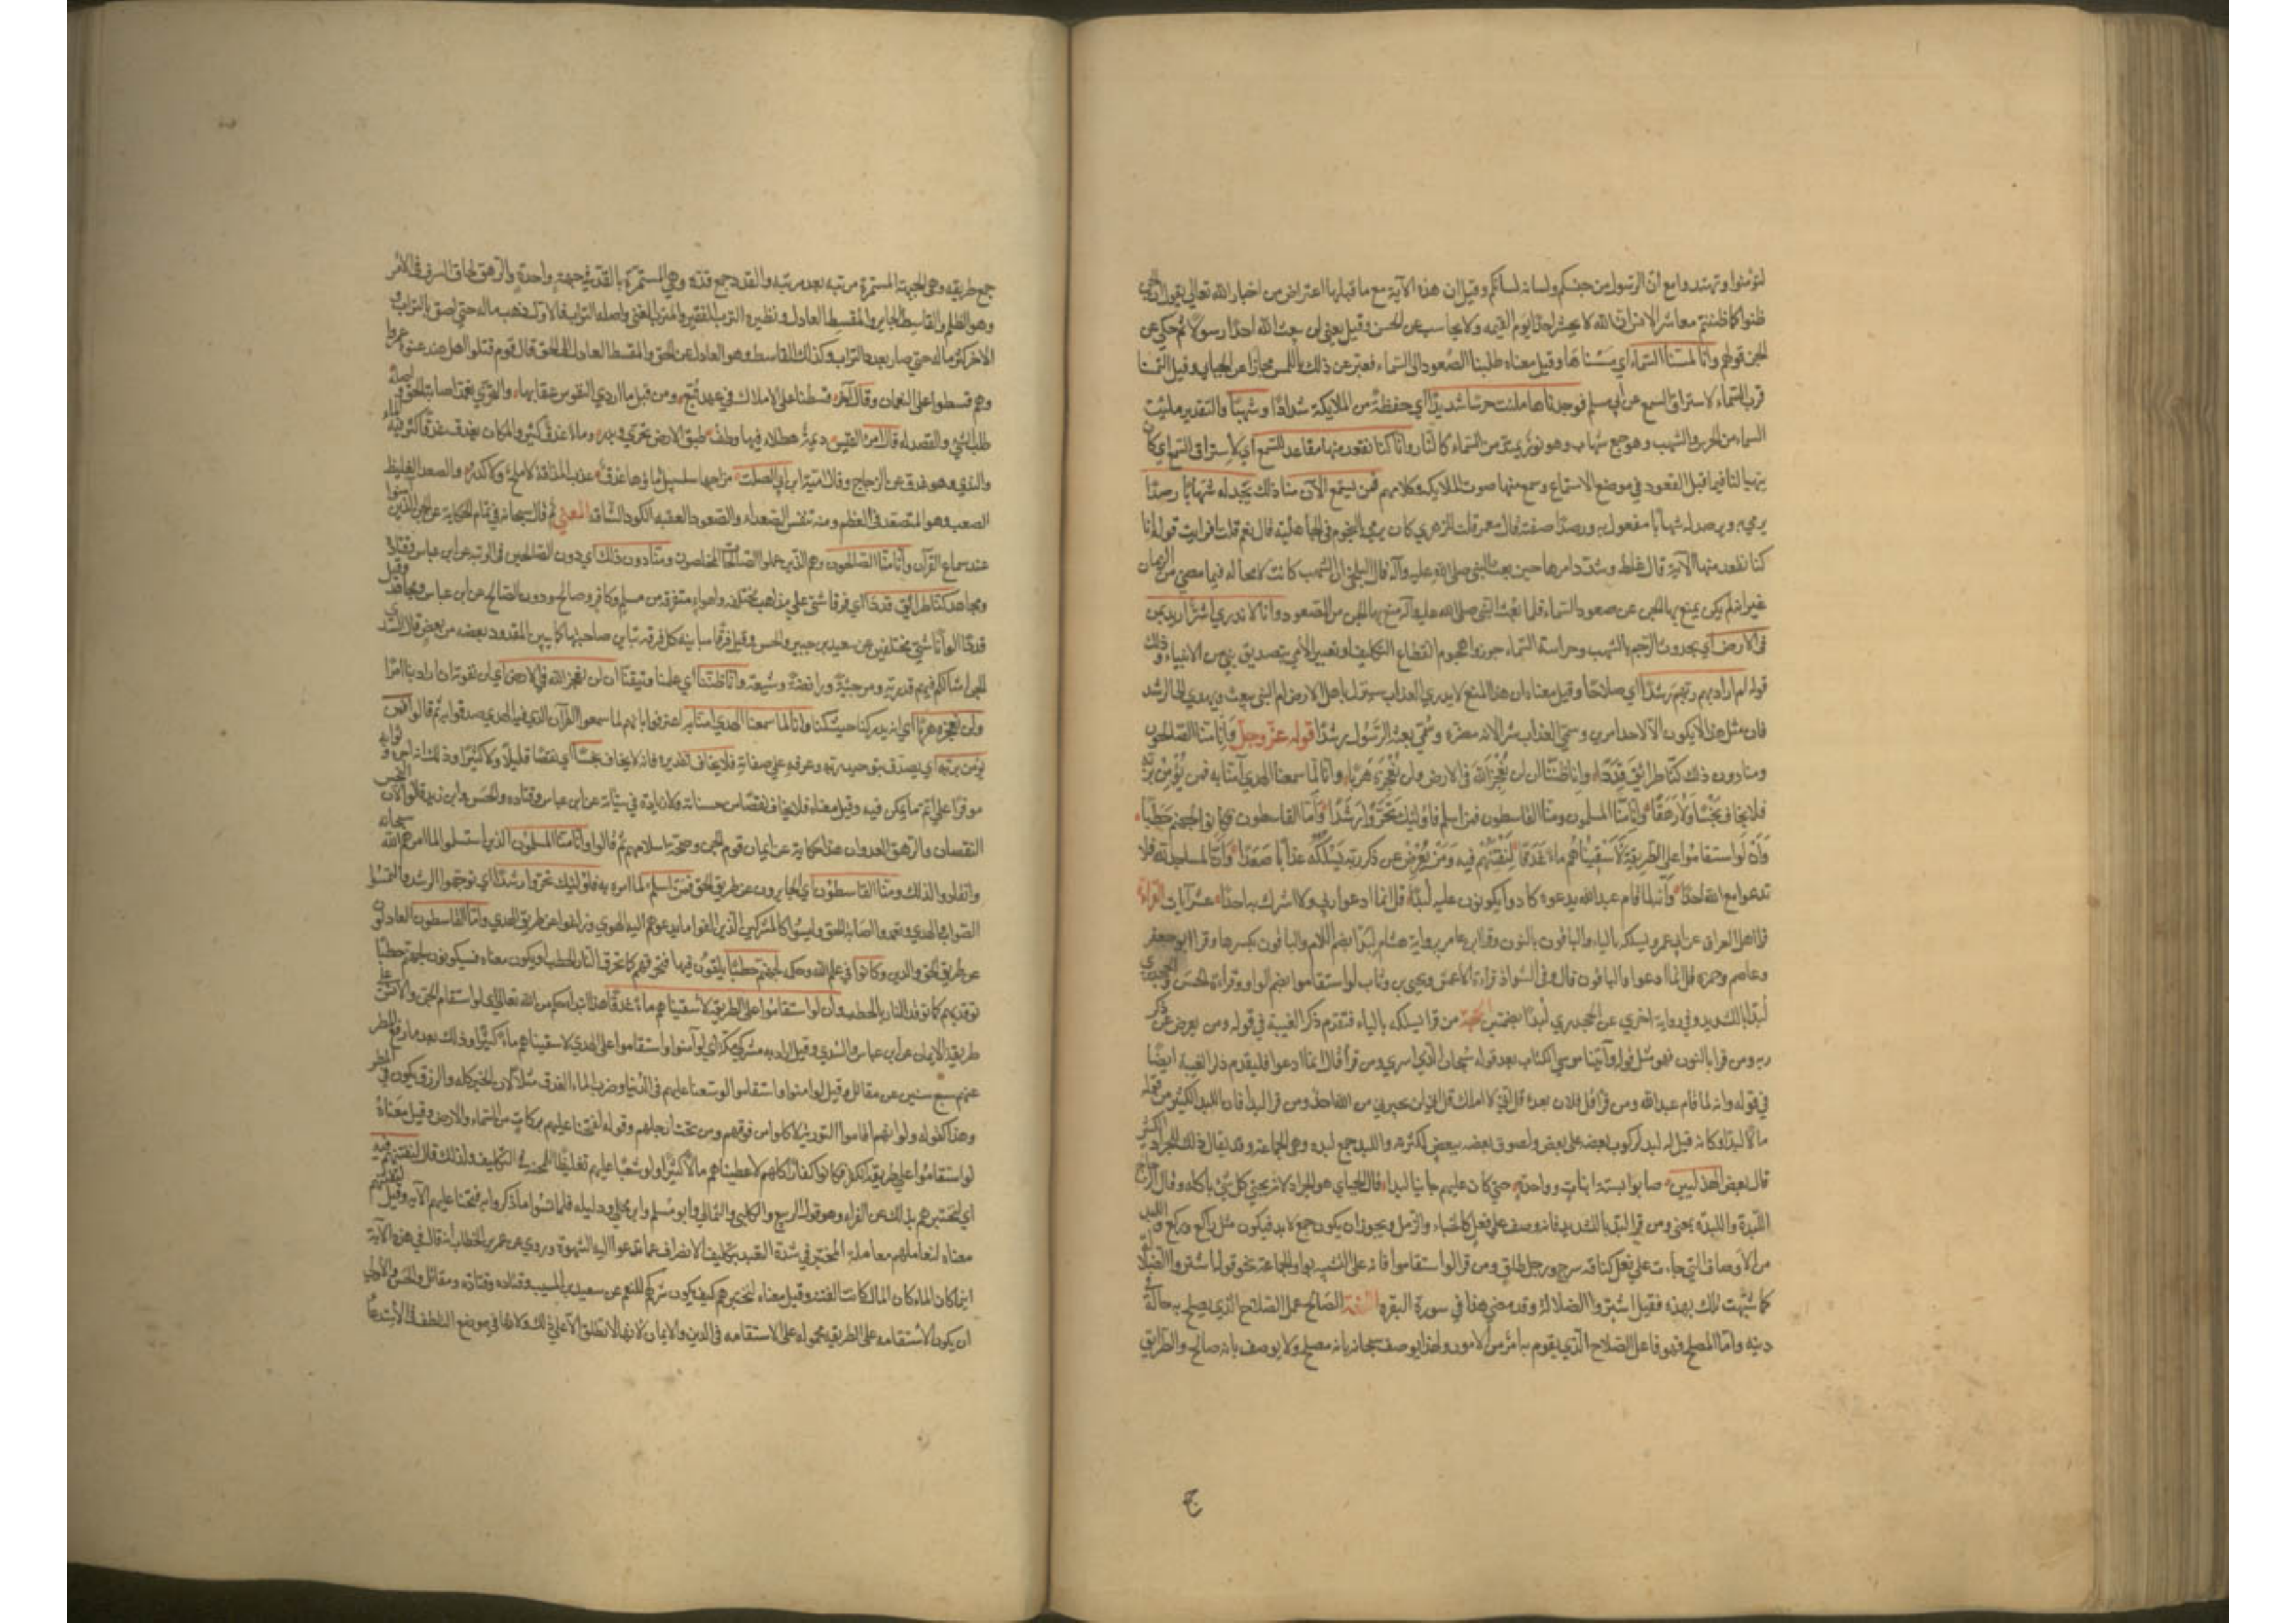 لتؤمنوا وتهتدوا مع ان الرسول من جنسكم ولسانه لسانكم وقيل ان هذه الآية مع ما قبلها اعتراض من اخبار الله تعالى يقول ان الجن
ظنوا كما ظننتم معاشر الانس ان الله لا يحشر احدا يوم القيمه ولا يحاسب عن الحسن وقيل يعني لن يبعث الله احدا رسولا ثم حكى عن
الجن قولهم وانا لمسنا السماء اي مسسناها وقيل معناه طلبنا الصعود الى السماء فعبر عن ذلك باللمس مجازا عن الجبايي وقيل التمسنا
قرب السماء لاستراق السمع عن ابي مسلم فوجدناها ملئت حرسا شديدا اي حفظة من الملايكة شدادا وشهبا والتقدير ملئت
السماء من الحرس والشهب وهو جمع شهاب وهو نور يمتد من السماء كالنار وانا كنا نقعد منها مقاعد للسمع اي لاستراق السمع اي كان
يتهيا لنا فيما قبل القعود في موضع الاستماع ونسمع منها صوت الملايكة وكلامهم فمن يستمع الآن منا ذلك يجد له شهابا رصدا
يرمي به ويرصد له شهابا مفعول به ورصدا صفته قال معمر قلت للزهري كان يرمي بالنجوم في الجاهلية قال نعم قلت افرايت قوله انا
كنا نقعد منها الآية قال غلظ وشدد امرها حين بعث النبي صلى الله عليه وآله قال البلخي ان الشهب كانت لا محالة فيما مضى من الزمان
غير انه لم يكن يمنع بها الجن عن صعود السماء فلما بعث النبي صلى الله عليه وآله منع بها الجن من الصعود وانا لا ندري اشر اريد بمن
في الارض اي بحدوث الرجم بالشهب وحراسة السماء جوزوا هجوم انقطاع التكليف او تغيير الامر بتصديق نبي من الانبياء وذلك
قوله ام اراد بهم ربهم رشدا اي صلاحا وقيل معناه ان هذا المنع لا يدرى العذاب سينزل باهل الارض ام لنبي يبعث ويهدي الى الرشد
فان مثل هذا لا يكون الا لاحد امرين وسمي العذاب شرا لانه مضرة وسمي بعثة الرسول رشدا قوله عز وجل وانا منا الصالحون
ومنا دون ذلك كنا طرائق قددا وانا ظننا ان لن نعجز الله في الارض ولن نعجزه هربا وانا لما سمعنا الهدى آمنا به فمن يؤمن بربه
فلا يخاف بخسا ولا رهقا وانا منا المسلمون ومنا القاسطون فمن اسلم فاولئك تحروا رشدا واما القاسطون فكانوا لجهنم حطبا
وان لو استقاموا على الطريقة لاسقيناهم ماء غدقا لنفتنهم فيه ومن يعرض عن ذكر ربه يسلكه عذابا صعدا وان المساجد لله فلا
تدعوا مع الله احدا وانه لما قام عبد الله يدعوه كادوا يكونون عليه لبدا قل انما ادعوا ربي ولا اشرك به احدا عشر آيات القراءة
قرا اهل العراق عن ابي عمرو يسلكه بالياء والباقون بالنون وقرا ابن عامر برواية هشام لبدا بضم اللام والباقون بكسرها وقرا ابو جعفر
وعاصم وحمزه قل انما ادعوا والباقون قال وفي الشواذ قراءة الاعمش ويحيى بن وثاب لو استقاموا بضم الواو وقراءة الحسن والجحدري
لبدا بالتشديد وفي رواية اخرى عن الجحدري لبدا بضمتين الحجة من قرا يسلكه بالياء فتقدم ذكر الغيبة في قوله ومن يعرض عن ذكر
ربه ومن قرا بالنون فهو مثل قوله وآتينا موسى الكتاب بعد قوله سبحان الذي اسرى ومن قرا قل انما ادعوا فليقدم ذكر الغيبة ايضا
في قوله وانه لما قام عبد الله ومن قرا قل فلان بعده قل اني لا املك قل اني لن يجيرني من الله احد ومن قرا لبدا فان اللبد الكثير من قوله
مالا لبدا وكانه قيل له لبد لركوب بعضه على بعض ولصوق بعضه ببعض لكثرته واللبد جمع لبده وهي الجماعة وقد يقال ذلك للجراد الكثير
قال بعض الهذليين صابوا بستة ابيات وواحدة حتى كان عليهم جابيا لبدا قال الجبايي هو الجراد لانه يجبي كل شيء باكله وقال الزجاج
اللبدة واللبدة بمعنى ومن قرا لبدا بالتشديد فانه وصف على فعل كالجباء والزمل ويجوز ان يكون جمع لابد فيكون مثل راكع وركع واللبد
من الاوصاف التي جاءت على فعل كناقة سرح ورجل طلق ومن قرا لو استقاموا فانه على التشبيه بواو الجماعة نحو قوله اشتروا الضلالة
كما شبهت تلك بهذه فقيل اشتروا الضلالة وقد مضى هذا في سورة البقره اللغة الصالح عمل الصلاح الذي يصلح به حاله في
دينه واما المصلح فهو فاعل الصلاح الذي يقوم به امر من الامور ولهذا يوصف سبحانه بانه مصلح ولا يوصف بانه صالح والطرائق
ج
جمع طريقه وهي الجهة المستمرة مرتبه بعد مرتبه والقدد جمع قده وهي المستمرة بالقد في جهة واحدة والرهق لحاق السرف في الامر
وهو الظلم والقاسط الجاير والمقسط العادل ونظيره الترب الفقير والمترب الغني واصله التراب فالاول ذهب ماله حتى لصق بالتراب و
الاخر كثر ماله حتى صار بعدد التراب وكذلك القاسط وهو العادل عن الحق والمقسط العادل الى الحق قال قوم قتلوا ابن هند عنوة عمروا
وهم قسطوا على النعمان وقال آخر قسطنا على الاملاك في عهد تبع ومن قبل ما اردى النفوس عقابها والتحري تعمد اصابة الحق واصله
طلب الشيء والقصد له قال امرؤ القيس ديمة هطلاء فيها وطف طبق الارض تحرى وتدر وماء غدق كثير والمكان يغدق غدقا كثر فيه الماء
والندى وهو غدق عن الزجاج وقال امية ابن ابي الصلت مزاجها سلسبيل ماؤها غدق عذب المذاقة لا ملح ولا كدر والصعد الغليظ
الصعب وهو المتصعد في العظم ومنه تنفس الصعداء والصعود العقبه الكود الشاقه المعنى ثم قال سبحانه في تمام الحكاية عن الجن الذين آمنوا
عند سماع القرآن وانا منا الصالحون وهم الذين عملوا الصالحات المخلصون ومنا دون ذلك اي دون الصالحين في الرتبه عن ابن عباس وقتادة
ومجاهد كنا طرائق قددا اي فرقا شتى على مذاهب مختلفة واهواء متفرقة من مسلم وكافر وصالح ودون الصالح عن ابن عباس ومجاهد وقيل
قددا الوانا شتى مختلفين عن سعيد بن جبير والحسن وقيل فرقا متباينة كل فرقة تباين صاحبتها كما يبين المقدود بعضه من بعض قال السدي
الجن امثالكم فيهم قدرية ومرجئة ورافضة وشيعة وانا ظننا اي علمنا وتيقنا ان لن نعجز الله في الارض اي لن نفوته ان اراد بنا امرا
ولن نعجزه هربا اي انه يدركنا حيث كنا وانا لما سمعنا الهدى آمنا به اعترفوا بانهم لما سمعوا القرآن الذي فيه الهدى صدقوا به ثم قالوا فمن
يؤمن بربه اي يصدق بتوحيد ربه وعرفه على صفاته فلا يخاف تقديره فانه لا يخاف بخسا اي نقصا قليلا ولا كثيرا وذلك ان اجره وثوابه
موفر على اتم ما يكون فيه وقيل معناه فلا يخاف نقصا من حسناته ولا زيادة في سيئاته عن ابن عباس وقتاده والحسن وابن زيد قالوا لان البخس
النقصان والرهق العدوان هذا حكاية عن ايمان قوم الجن وصحة اسلامهم ثم قالوا وانا منا المسلمون الذين استسلموا لما امرهم الله سبحانه
وانقادوا لذلك ومنا القاسطون اي الجايرون عن طريق الحق فمن اسلم لما امره به فاولئك تحروا رشدا اي توجهوا الرشد والتمسوا
الصواب والهدى وتعمدوا اصابة الحق وليسوا كالمشركين الذين الفوا ما يدعوهم اليه الهوى وزاغوا عن طريق الهدى واما القاسطون العادلون
عن طريق الحق والدين وكانوا في علم الله وحكمه لجهنم حطبا يلقون فيها فتحرقهم كما تحرق النار الحطب او يكون معناه فسيكونون لجهنم حطبا
توقد بهم كما توقد النار بالحطب وان لو استقاموا على الطريقة لاسقيناهم ماء غدقا هذا ابتداء حكم من الله تعالى اي لو استقام الجن والانس على
طريقة الايمان عن ابن عباس والسدي وقيل اراد به مشركي مكة اي لو آمنوا واستقاموا على الهدى لاسقيناهم ماء كثيرا وذلك بعد ما رفع المطر
عنهم سبع سنين عن مقاتل وقيل لو امنوا واستقاموا لوسعنا عليهم في الدنيا وضرب الماء الغدق مثلا لان الخير كله والرزق يكون في المطر
وهذا كقوله ولو انهم اقاموا التورية لاكلوا من فوقهم ومن تحت ارجلهم وقوله لفتحنا عليهم بركات من السماء والارض وقيل معناه
لو استقاموا على طريقة الكفر فكانوا كفارا كلهم لاعطيناهم مالا كثيرا ولوسعنا عليهم تغليظا للمحنة في التكليف ولذلك قال لنفتنهم فيه
اي لنختبرهم بذلك عن الفراء وهو قول الربيع والكلبي والثمالي وابو مسلم وابن مجلز ودليله فلما نسوا ما ذكروا به فتحنا عليهم الآيه وقيل لنفتنهم
معناه لنعاملهم معاملة المختبر في شدة التعبد بتكليف الانصراف عما تدعوا اليه الشهوة وروي عن عمر بن الخطاب انه قال في هذه الآية
اينما كان الماء كان المال كانت الفتنه وقيل معناه لنختبرهم كيف يكون شكرهم للنعم عن سعيد بن المسيب وقتاده ومقاتل والحسن والاولى
ان يكون الاستقامه على الطريقه محموله على الاستقامه في الدين والايمان لانها لا تطلق الا على ذلك ولانها في موضع التلطف والاستدعاء